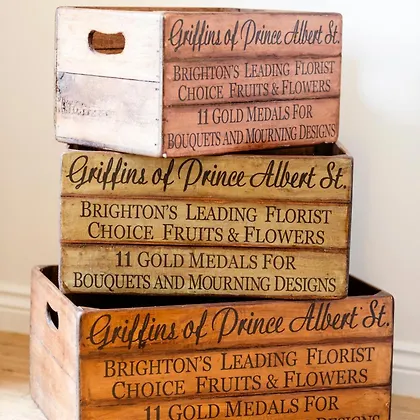 Griffins of Prince Albert St.
BRIGHTON'S LEADING FLORIST
CHOICE FRUITS & FLOWERS
11 GOLD MEDALS FOR
BOUQUETS AND MOURNING DESIGNS
Griffins of Prince Albert St.
BRIGHTON'S LEADING FLORIST
CHOICE FRUITS & FLOWERS
11 GOLD MEDALS FOR
BOUQUETS AND MOURNING DESIGNS
Griffins of Prince Albert St.
BRIGHTON'S LEADING FLORIST
CHOICE FRUITS & FLOWERS
11 GOLD MEDALS FOR
DESIGNS